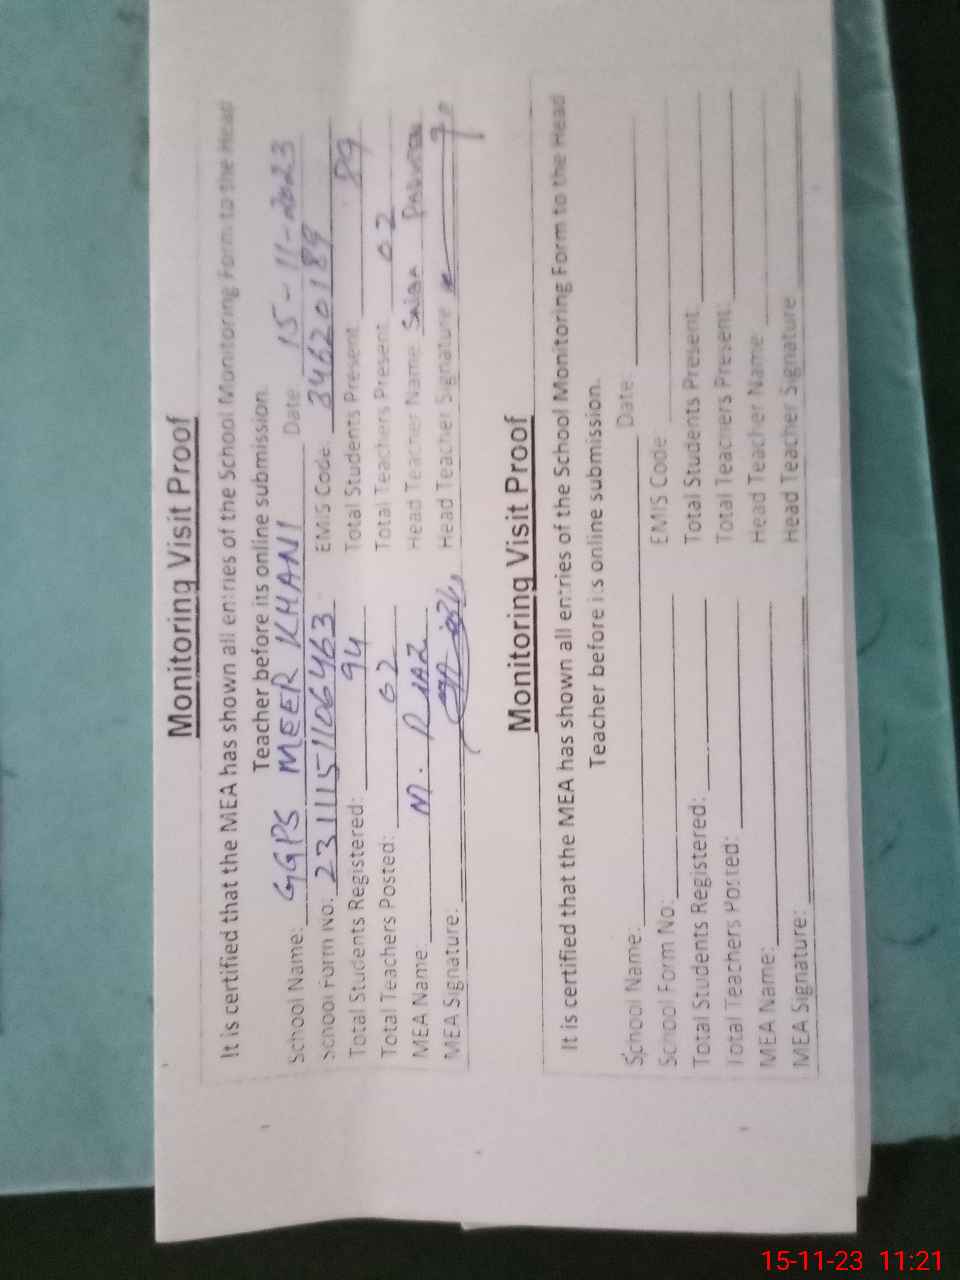 Monitoring Visit Proof
It is certified that the MEA has shown all entries of the School Monitoring Form to the Head
Teacher before its online submission.
School Name: GGPS MEER KHANI Date: 15-11-2023
School Form No: 231115110 6463 EMIS Code: 34620189
Total Students Registered: 94 Total Students Present 89
Total Teachers Posted: 02 Total Teachers Present 02
MEA Name: M. RIAZ Head Teacher Name: SAIQA
MEA Signature: Head Teacher Signature
Monitoring Visit Proof
It is certified that the MEA has shown all entries of the School Monitoring Form to the Head
Teacher before its online submission.
School Name: Date:
School Form No: EMIS Code
Total Students Registered: Total Students Present
Total Teachers Posted: Total Teachers Present:
MEA Name: Head Teacher Name:
MEA Signature: Head Teacher Signature
15-11-23 11:21